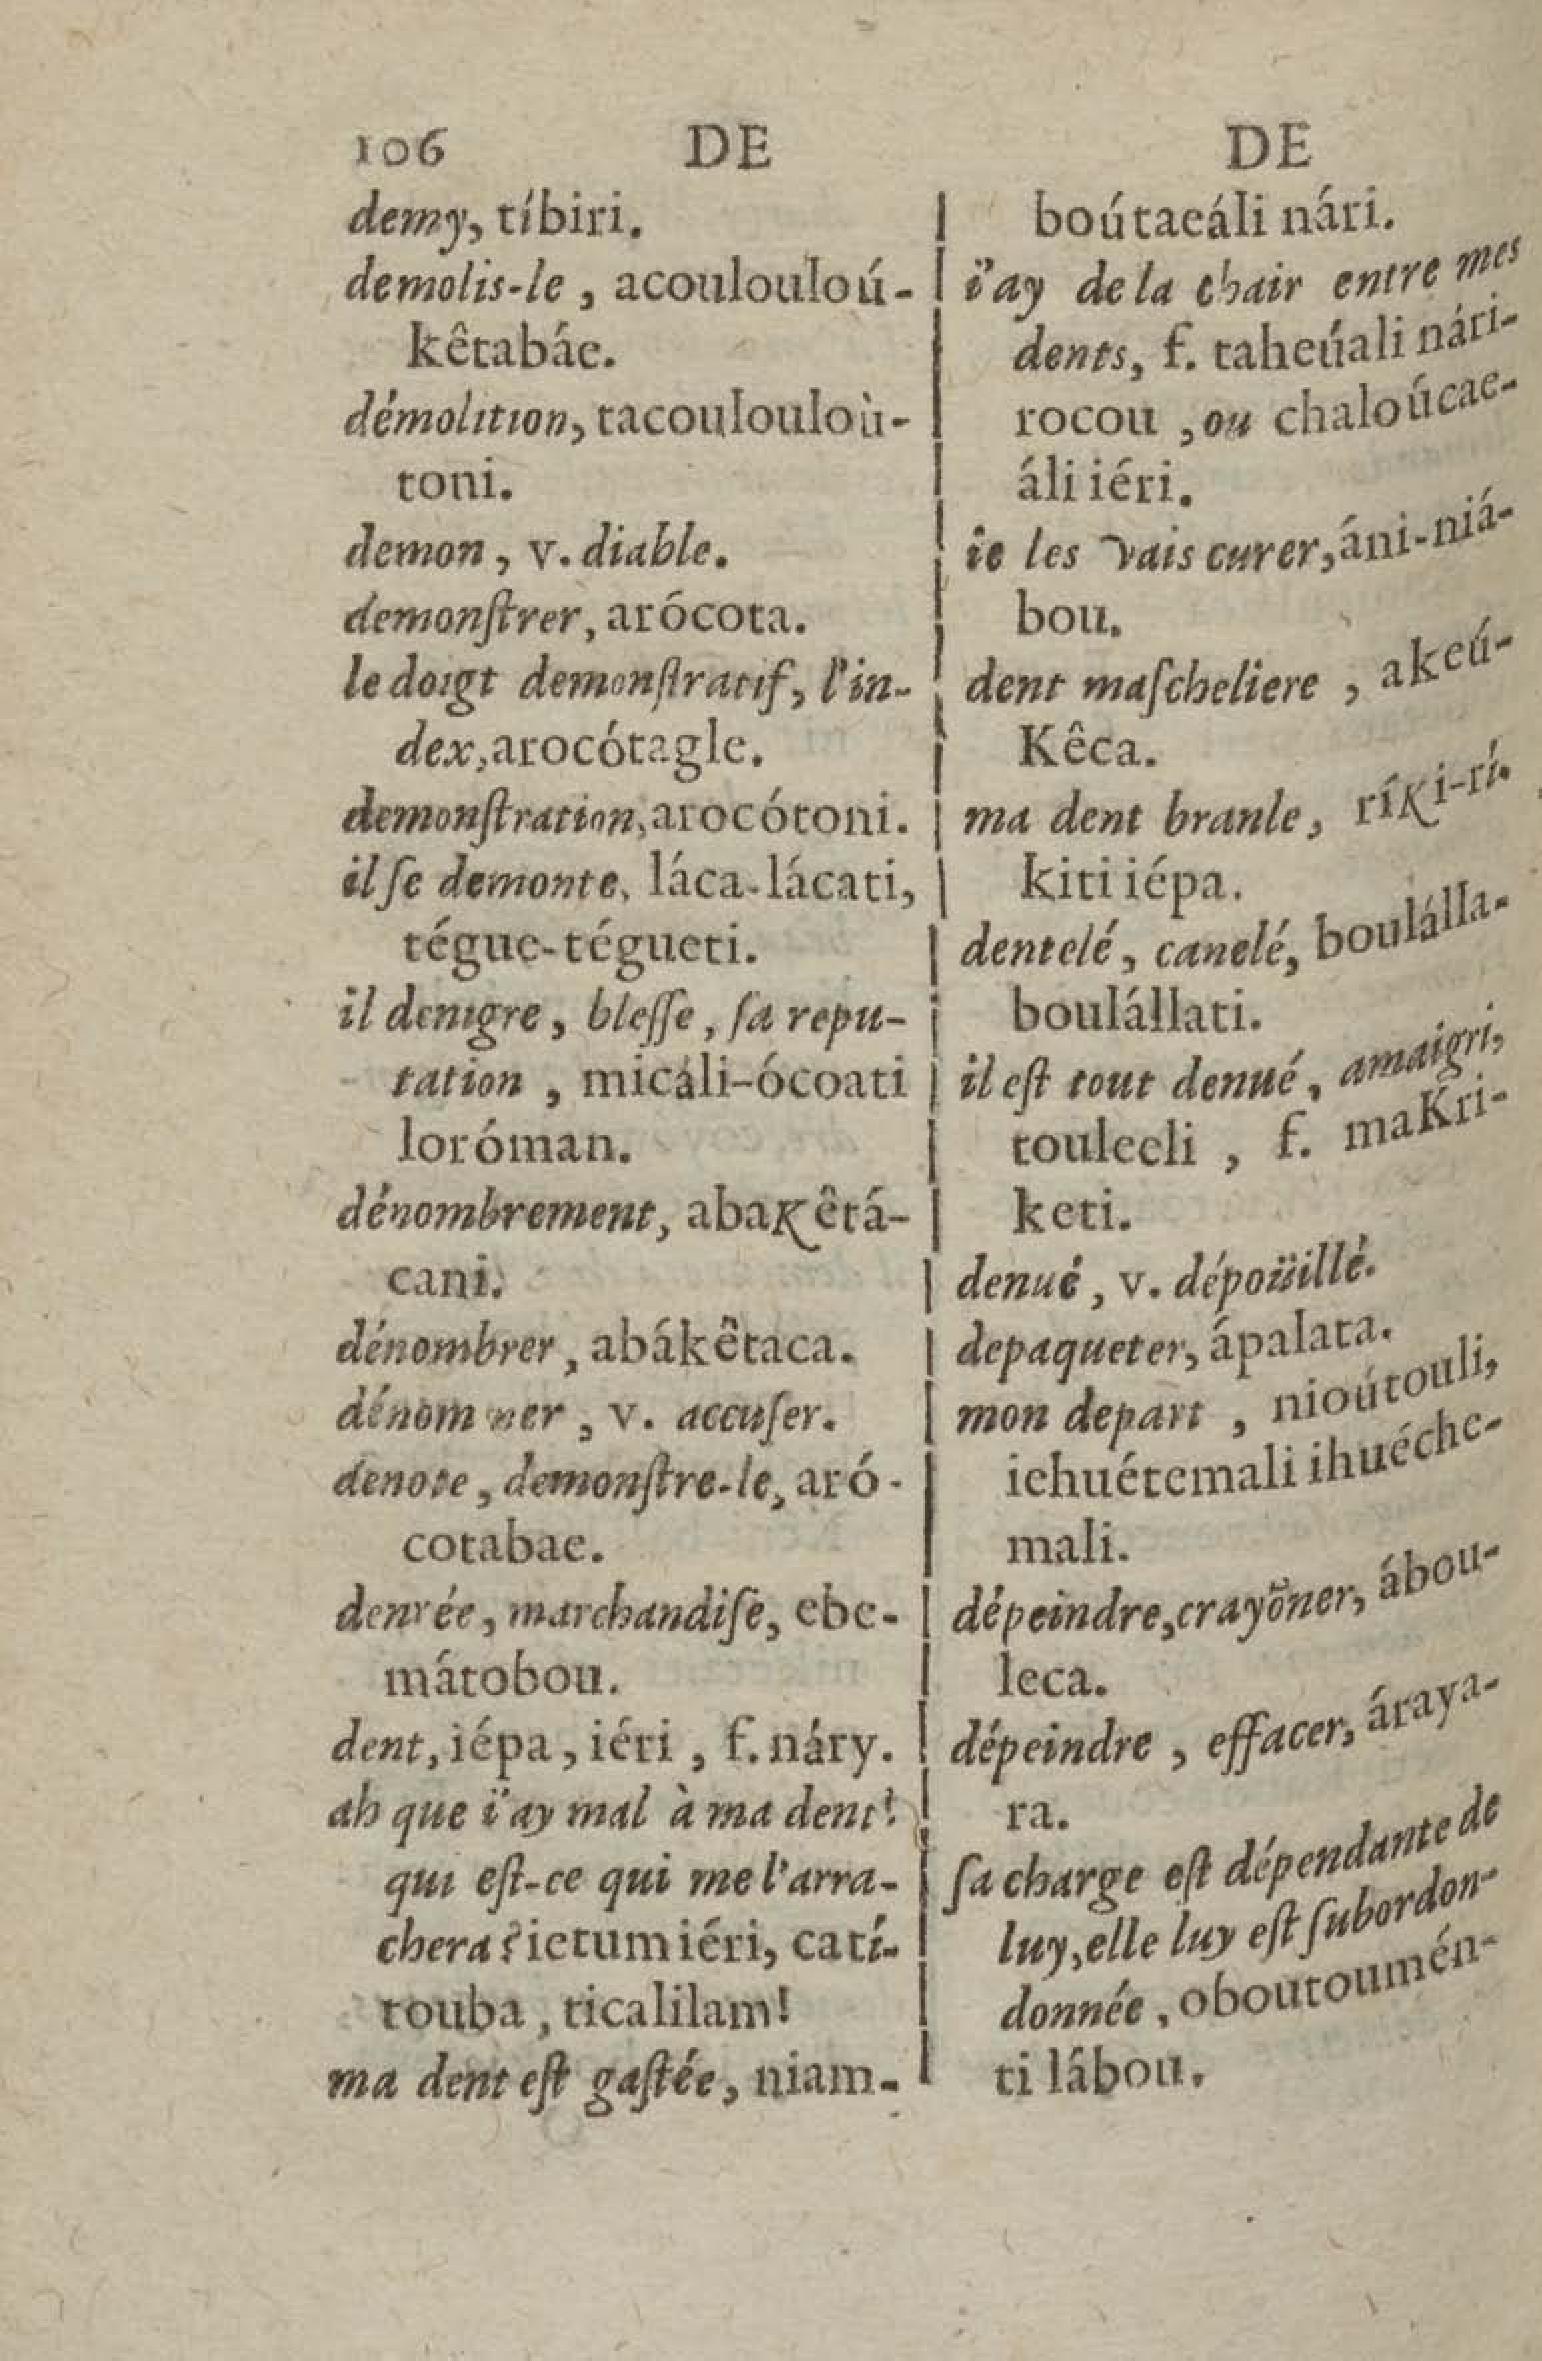 106 DE DE
demy, tíbiri.
demolis-le, acouloulou­ú-
kêtabáe.
démolition, tacoulouloù-
toni.
demon, v. diable.
demonſtrer, arócota.
le doigt demonſtratif, l'in-
dex, arocótagle.
demonſtration, arocótoni.
il ſe demonte, láca-lácati,
tégue-tégueti.
il denigre, bleſſe, ſa repu-
tation, micáli-ócoati
loróman.
dénombrement, abaKêtá-
cani.
dénombrer, abákêtaca.
dénommer, v. accuſer.
denote, demonſtre-le, aró-
cotabae.
denrée, marchandiſe, ebe-
mátobou.
dent, iépa, iéri, f. náry.
ah que i'ay mal à ma dent!
qui eſt-ce qui me l'arra-
chera? ietum iéri, catí-
touba, ticalilam!
ma dent eſt gaſtée, niam-
boútaeáli nári.
i'ay de la chair entre mes
dents, f. taheúali nári-
rocou, ou chaloúcae-
áli iéri.
ie les vais curer, áni-niá-
bou.
dent maſcheliere, akeú-
Kêca.
ma dent branle, ríKi-rí-
kiti iépa.
dentelé, canelé, boulálla-
boulállati.
il eſt tout denué, amaigri,
touleeli, f. maKri-
keti.
denué, v. dépoüillé.
depaqueter, ápalata.
mon depart, nioútouli,
iehuétemali ihuéche-
mali.
dépeindre, crayõner, ábou-
leca.
dépeindre, effacer, áraya-
ra.
ſa charge eſt dépendante de
luy, elle luy eſt ſubordon-
donnée, oboutoumén-
ti lábou.